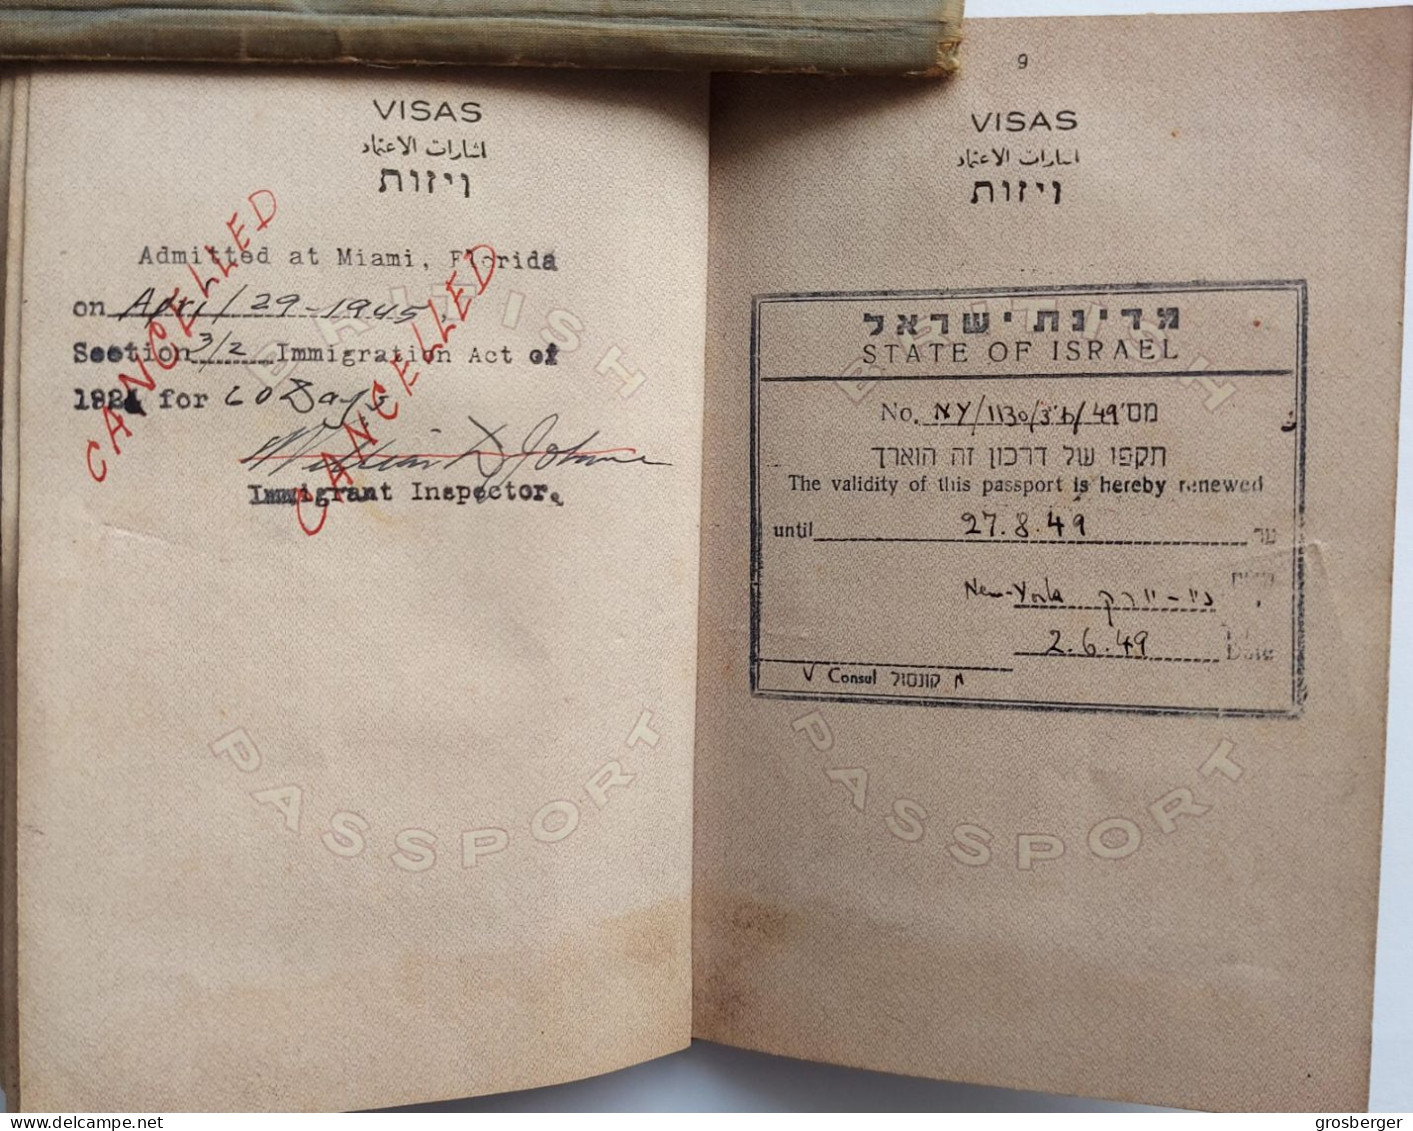 VISAS
اشارات الاعتماد
ויזות
Admitted at Miami, Florida
on April 29-1945,
Section 3/2 Immigration Act of
1924 for 60 Days
CANCELLED
CANCELLED
Immigrant Inspector.
BRITISH
PASSPORT
9
VISAS
اشارات الاعتماد
ויזות
מדינת ישראל
STATE OF ISRAEL
No. NY/1130/3'ט/49 מס'
תקפו של דרכון זה הוארך
The validity of this passport is hereby renewed
until 27.8.49 עד
New-York ניו-יורק
2.6.49 Date
Consul קונסול
BRITISH
PASSPORT
grosberger